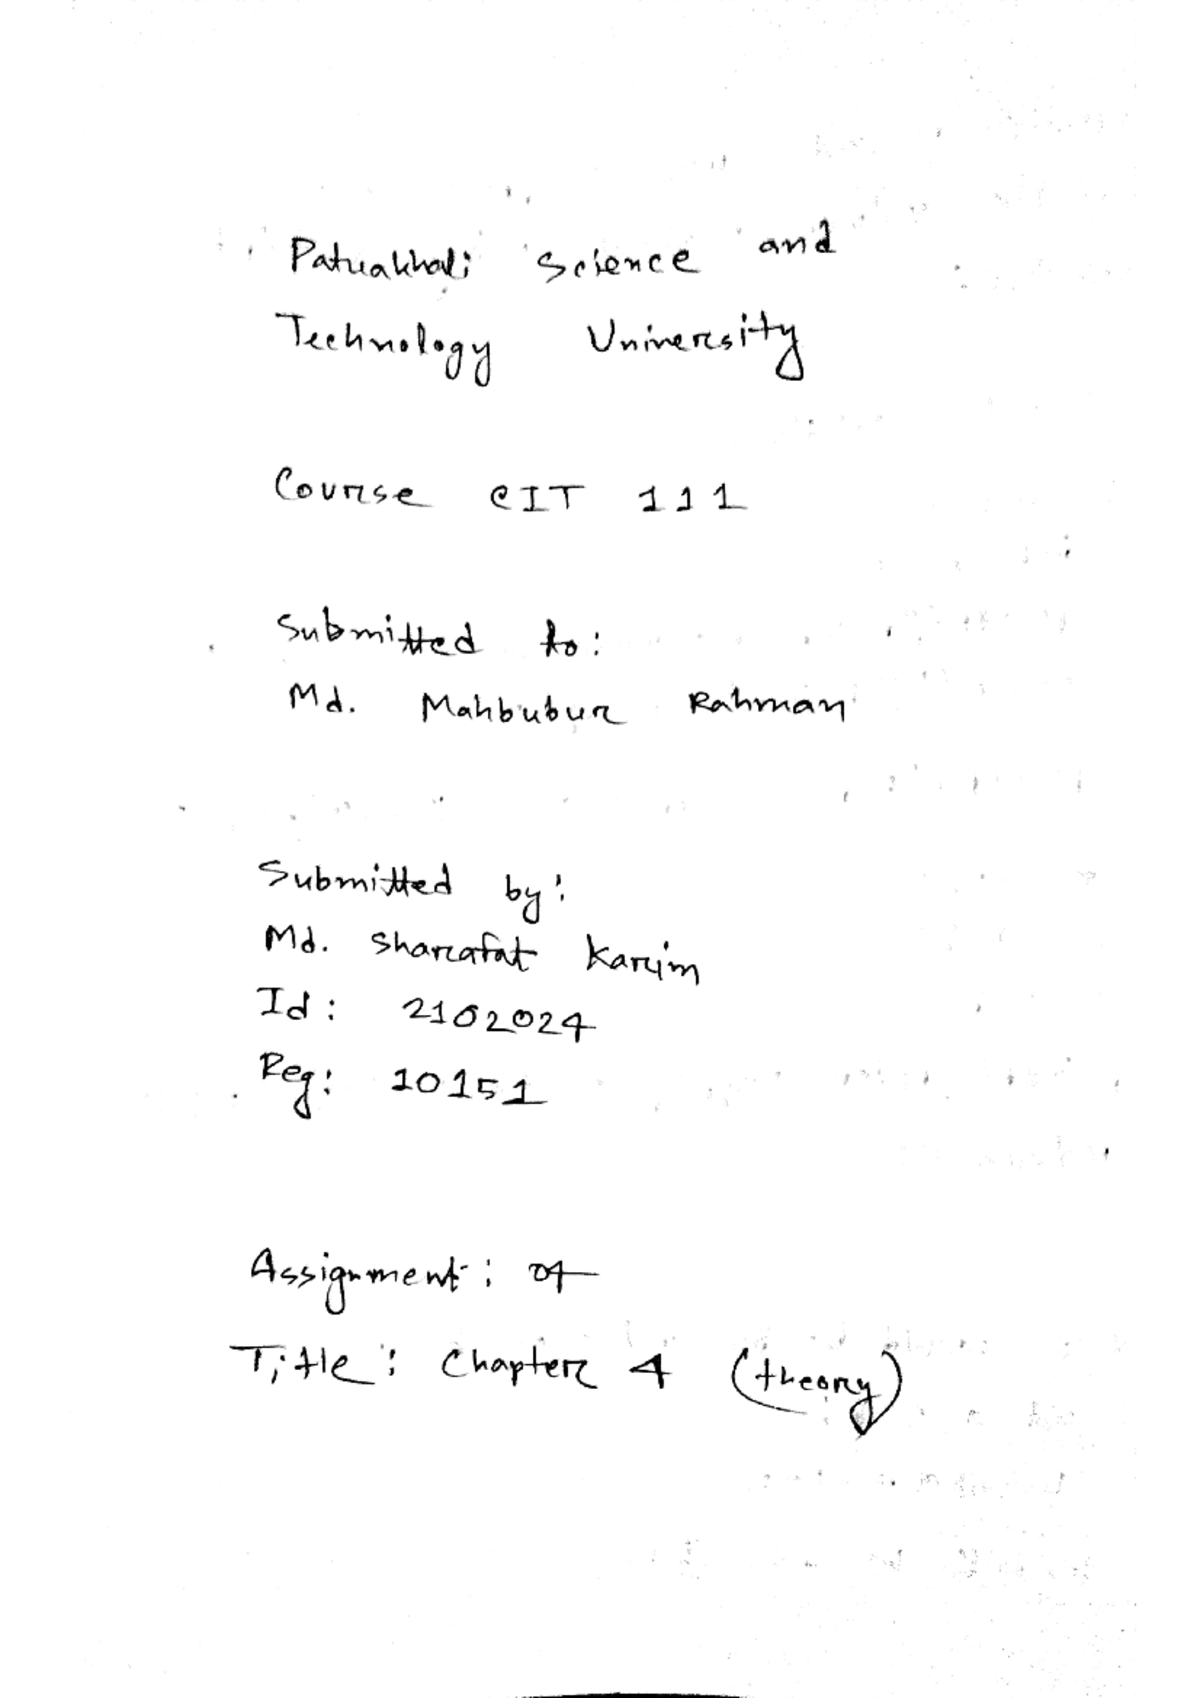 Patuakhali Science and
Technology University
Course CIT 111
Submitted to:
Md. Mahbubur Rahman
Submitted by:
Md. Sharafat Karim
Id: 2102024
Reg: 10151
Assignment: 04
Title: Chapter 4 (theory)